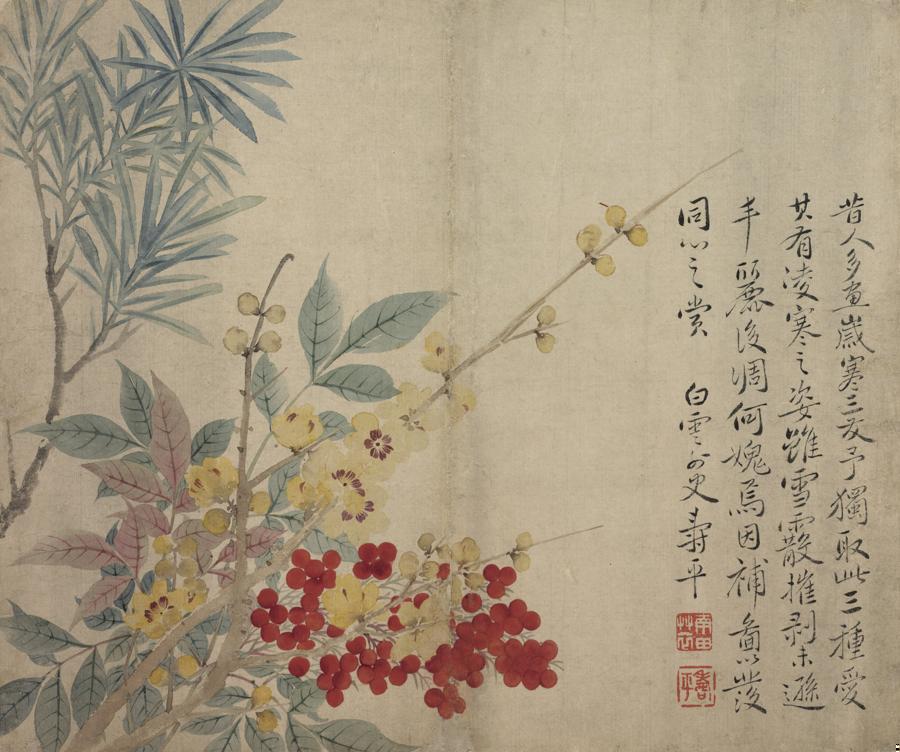 昔人多畫歲寒三友予獨取此三種愛
其有凌寒之姿雖雪霰摧剥未遜
丰麗後凋何媿焉因補圖以發
同心之賞　白雲外史壽平
南田草衣
壽平